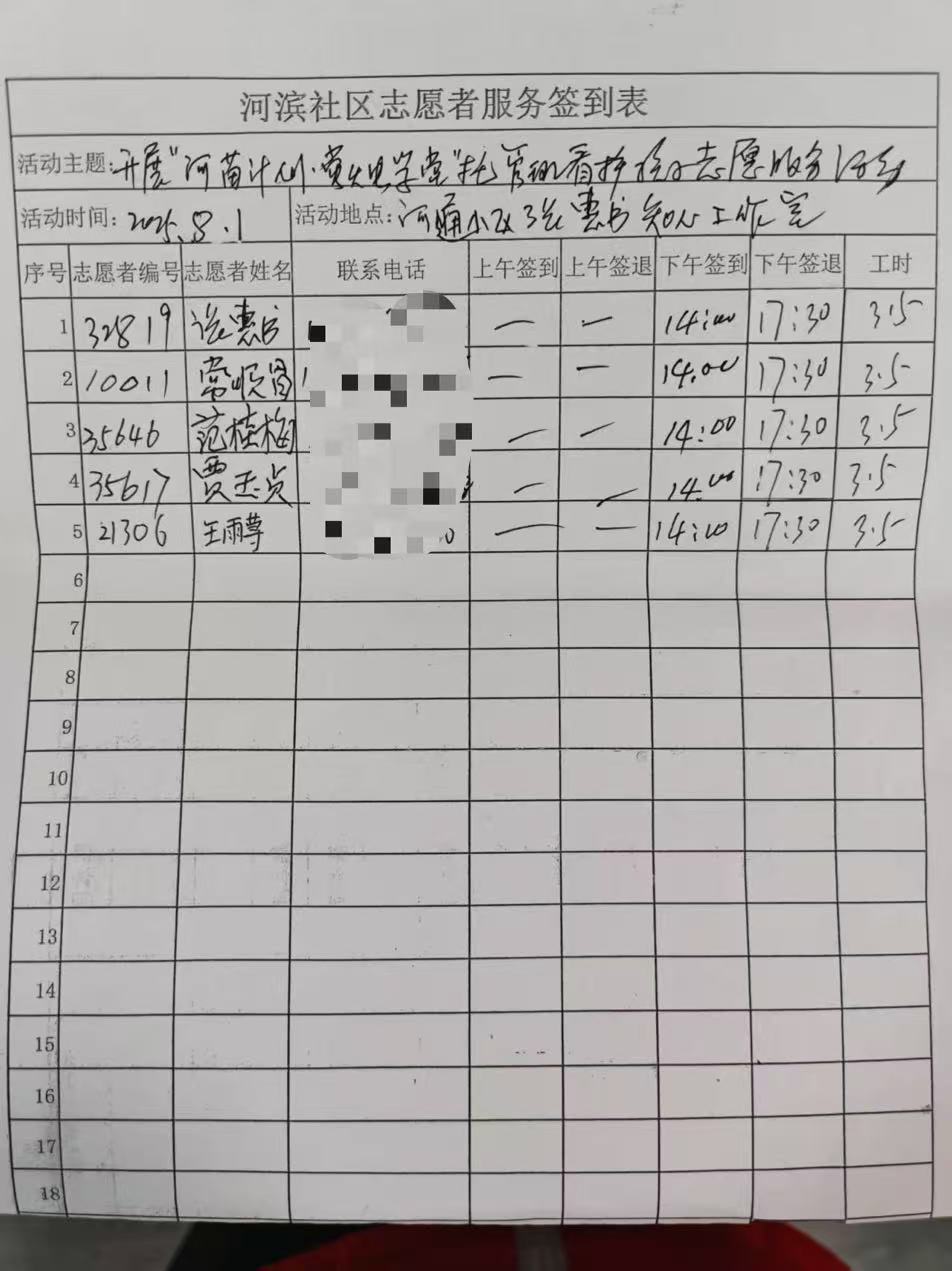 河滨社区志愿者服务签到表
活动主题:开展"河苗计划·萤火虫学堂"托管班看护孩子志愿服务活动
活动时间:2025.8.1 活动地点:河涵小区张惠书知心工作室
序号 志愿者编号 志愿者姓名 联系电话 上午签到 上午签退 下午签到 下午签退 工时
1 32819 张惠书 — — 14:00 17:30 3.5
2 10011 常顺 — — 14:00 17:30 3.5
3 35646 范桂梅 — — 14:00 17:30 3.5
4 35617 贾玉贞 — — 14:00 17:30 3.5
5 21306 王雨荨 — — 14:00 17:30 3.5
6
7
8
9
10
11
12
13
14
15
16
17
18